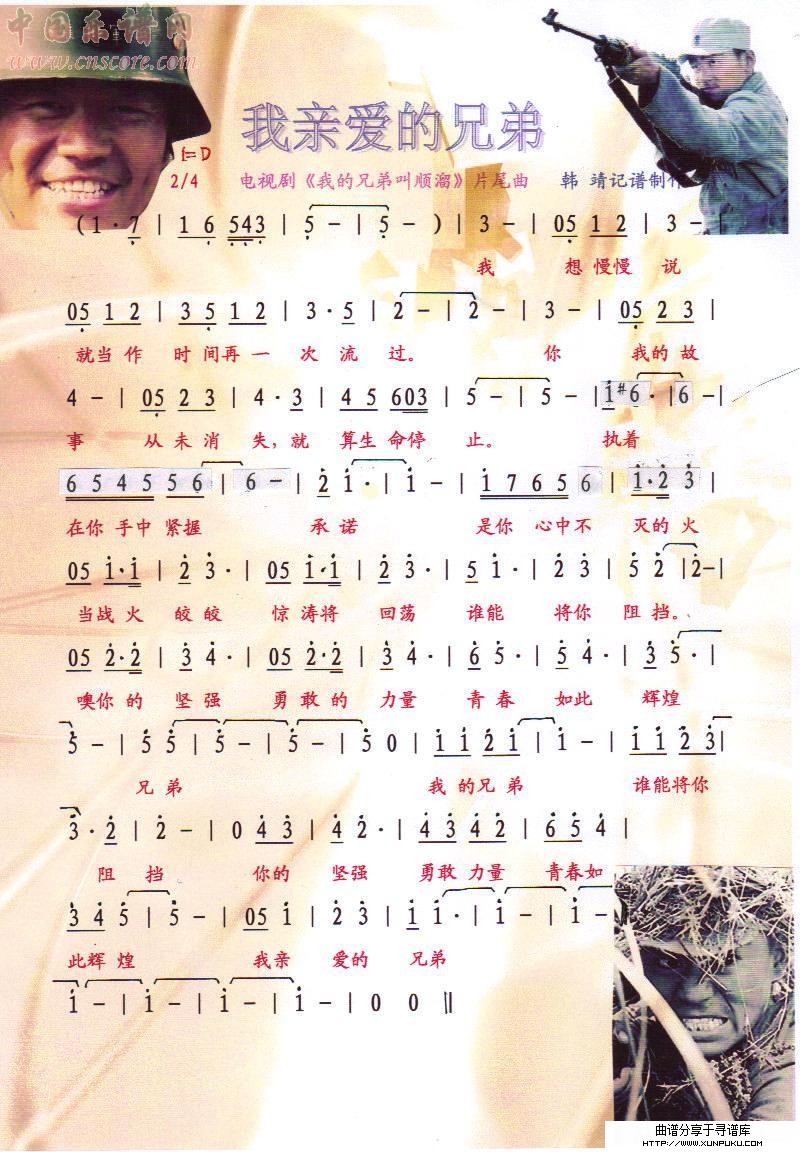 中国乐谱网
www.cnscore.com
我亲爱的兄弟
1=D
2/4 电视剧《我的兄弟叫顺溜》片尾曲 韩 靖记谱制作
(1·7 | 1 6 543 | 5 - | 5 - ) | 3 - | 05 1 2 | 3 - |
我 想 慢慢 说
05 1 2 | 3 5 1 2 | 3·5 | 2 - | 2 - | 3 - | 05 2 3 |
就当 作 时 间再 一 次 流 过。 你 我的 故
4 - | 05 2 3 | 4·3 | 4 5 603 | 5 - | 5 - | 1#6· | 6 - |
事 从 未 消 失,就 算生 命停 止。 执着
6 5 4 5 5 6 | 6 - | 2 1· | 1 - | 1 7 6 5 6 | 1·2 3 |
在你 手中 紧握 承诺 是你 心中不 灭的 火
05 1·1 | 2 3· | 05 1·1 | 2 3· | 5 1· | 2 3 | 5 2 | 2 - |
当战 火 皎皎 惊 涛将 回荡 谁能 将你 阻挡。
05 2·2 | 3 4· | 05 2·2 | 3 4· | 6 5· | 5 4· | 3 5· |
噢你 的 坚强 勇 敢 的 力量 青春 如此 辉煌
5 - | 5 5 | 5 - | 5 - | 5 0 | 1 1 2 1 | 1 - | 1 1 2 3 |
兄 弟 我 的 兄 弟 谁能将你
3·2 | 2 - | 0 4 3 | 4 2· | 4 3 4 2 | 6 5 4 |
阻 挡 你的 坚强 勇敢 力量 青春如
3 4 5 | 5 - | 05 1 | 2 3 | 1 1· | 1 - | 1 -
此辉 煌 我亲 爱的 兄弟
1 - | 1 - | 1 - | 1 - | 0 0 ‖
曲谱分享于寻谱库
HTTP://WWW.XUNPUKU.COM